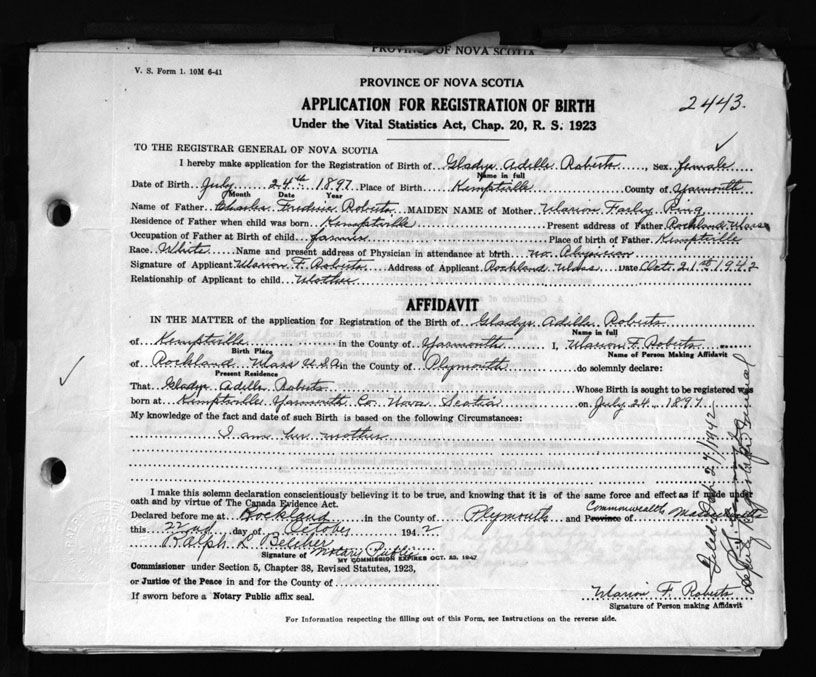 PROVINCE OF NOVA SCOTIA
V. S. Form 1. 10M 6-41
PROVINCE OF NOVA SCOTIA
APPLICATION FOR REGISTRATION OF BIRTH
2443.
Under the Vital Statistics Act, Chap. 20, R. S. 1923
TO THE REGISTRAR GENERAL OF NOVA SCOTIA
I hereby make application for the Registration of Birth of Gladys Adille Roberts, Sex female
Name in full
Date of Birth July 24th 1897 Place of Birth Kemptville County of Yarmouth
Month Date Year
Name of Father Charles Fredric Roberts MAIDEN NAME of Mother Marion Farley Ring
Residence of Father when child was born Kemptville Present address of Father Rockland Mass
Occupation of Father at Birth of child farmin Place of birth of Father Kemptville
Race White Name and present address of Physician in attendance at birth no Physician
Signature of Applicant Marion F. Roberts Address of Applicant Rockland Mass Date Oct. 21st 1942
Relationship of Applicant to child Mother
AFFIDAVIT
IN THE MATTER of the application for Registration of the Birth of Gladys Adille Roberts
Name in full
of Kemptville in the County of Yarmouth I, Marion F. Roberts
Birth Place Name of Person Making Affidavit
of Rockland Mass U.S.A in the County of Plymouth do solemnly declare:
Present Residence
That Gladys Adille Roberts Whose Birth is sought to be registered was
born at Kemptville Yarmouth Co. Nova Scotia on July 24 1897
My knowledge of the fact and date of such Birth is based on the following Circumstances:
I am her mother
I make this solemn declaration conscientiously believing it to be true, and knowing that it is of the same force and effect as if made under
oath and by virtue of The Canada Evidence Act.
Commonwealth
Declared before me at Rockland in the County of Plymouth and Province of Massachusetts
this 22nd day of October 1942
Ralph L. Belcher
Signature of Notary Public
MY COMMISSION EXPIRES OCT. 23, 1947
Commissioner under Section 5, Chapter 38, Revised Statutes, 1923,
or Justice of the Peace in and for the County of
Marion F. Roberts
If sworn before a Notary Public affix seal.
Signature of Person making Affidavit
For Information respecting the filling out of this Form, see Instructions on the reverse side.
Deputy Registrar General